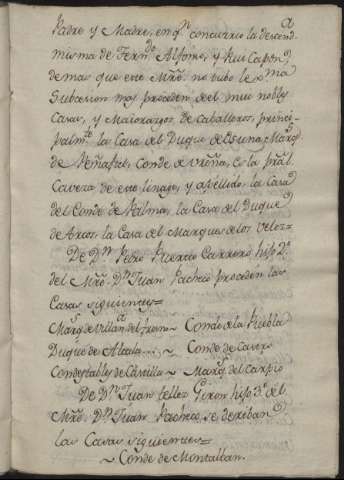 Padre y Madre, en qn concurrio la descendª
misma de Ferndo Alfonso, y Rui Capon,
demas que este Mrõ. no tubo lexma
Subcesion mas proceden deel mui nobles
Casas, y Maiorazgos de Caballeros, princi-
palmte. la Casa del Duque de Osuna Marqs
de Peñafiel, Conde de Vreña, es la pral.
Cavera de este linage, y apellido, la Casa
del Conde de Palma, la Casa del Duque
de Arcos, la Casa del Marques de los Velez=
De Dn Pedro Puerto Carrero hijo 2º
del Mrõ. Dn Juan Pacheco proceden las
Casas siguientes=
Marqs de Villanª del fresno ~ Conde de la Puebla
Duque de Alcala... ~ Conde de Castro
Condestables de Castilla ~ Marqs del Carpio
De Dn Juan tellez Giron hijo 3º del
Mrõ. Dn Juan Pacheco, se deriban
las Casas siguientes=
~ Conde de Montalban.